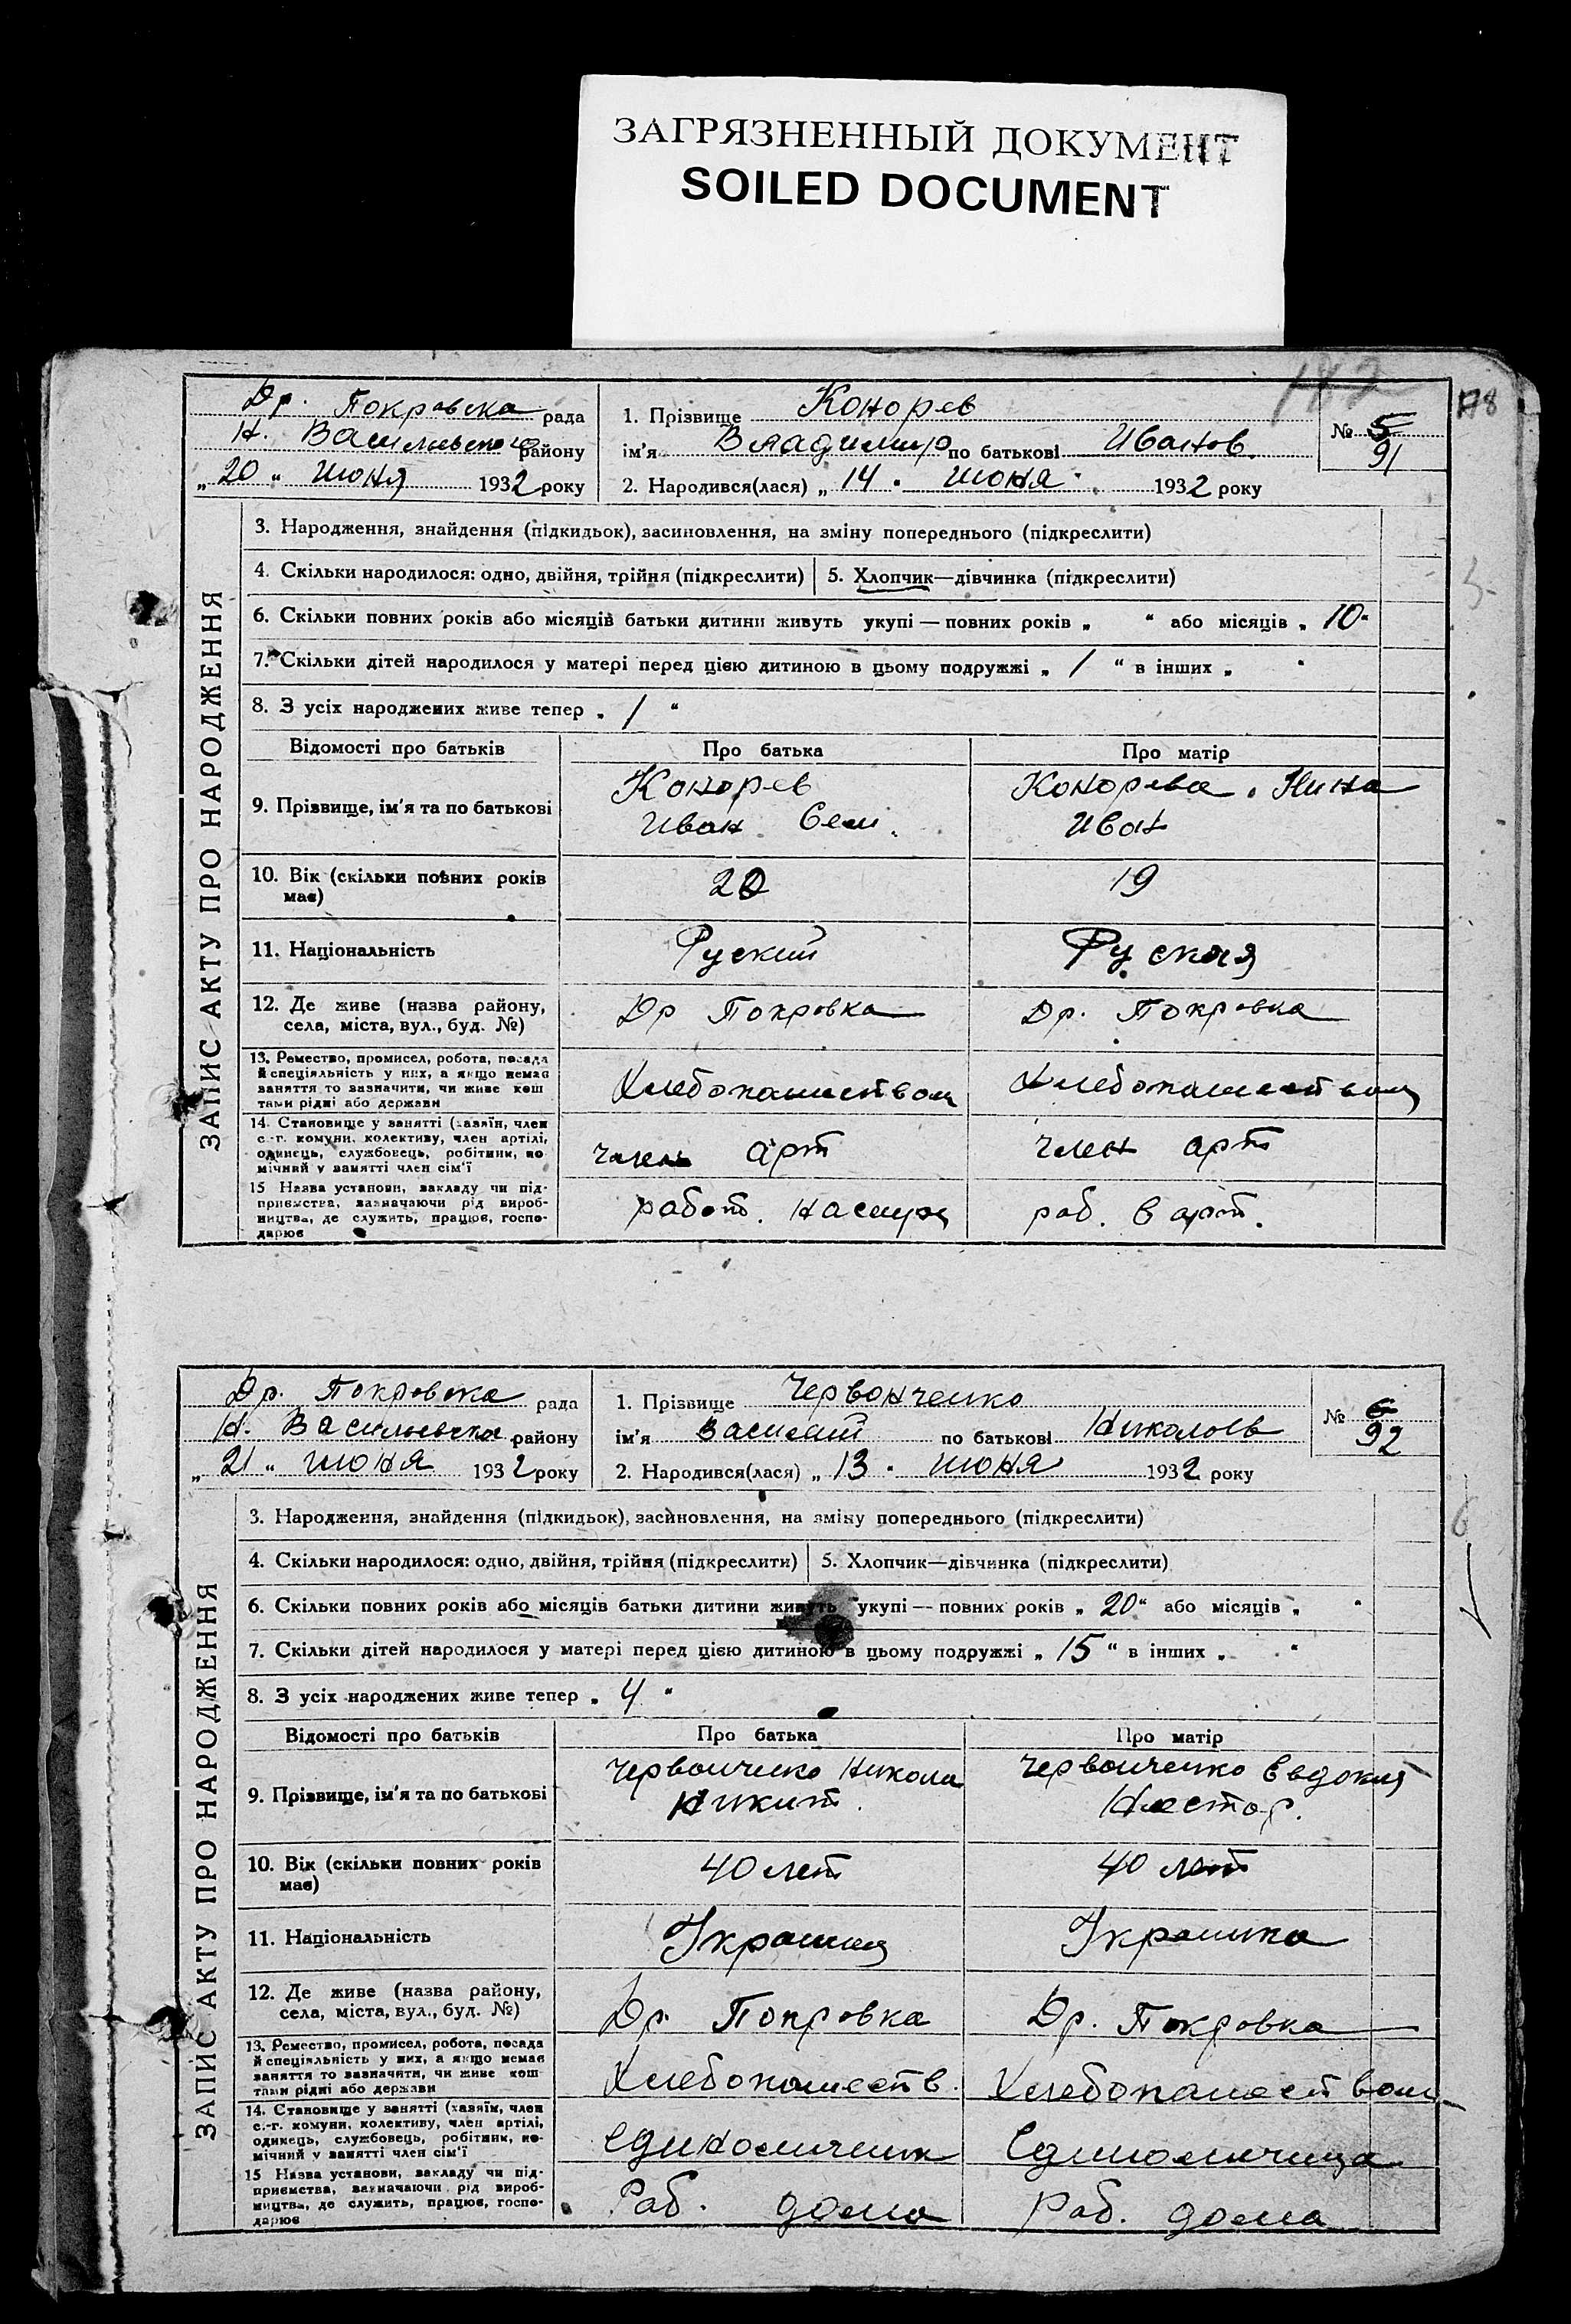 ЗАГРЯЗНЕННЫЙ ДОКУМЕНТ
SOILED DOCUMENT
178
Др. Покровска рада
Н. Васильевско району
„ 20 “ июня 1932 року
1. Прізвище Конорев
ім'я Владимир по батькові Иванов.
2. Народився(лася) „ 14 “ июня 1932 року
№ 5
91
ЗАПИС АКТУ ПРО НАРОДЖЕННЯ
3. Народження, знайдення (підкидьок), засиновлення, на зміну попереднього (підкреслити)
4. Скільки народилося: одно, двійня, трійня (підкреслити) 5. Хлопчик—дівчинка (підкреслити)
6. Скільки повних років або місяців батьки дитини живуть укупі — повних років „ “ або місяців „ 10 “
7. Скільки дітей народилося у матері перед цією дитиною в цьому подружжі „ 1 “ в інших „ “
8. З усіх народжених живе тепер „ 1 “
Відомості про батьків Про батька Про матір
9. Прізвище, ім'я та по батькові Конорев Иван Сем. Конорева Нина Иван
10. Вік (скільки повних років має) 20 19
11. Національність Руский Руская
12. Де живе (назва району, села, міста, вул., буд. №) Др Покровка Др. Покровка
13. Ремество, промисел, робота, посада й спеціяльність у них, а якщо немає заняття то зазначити, чи живе коштами рідні або держави Хлебопашеством Хлебопашеством
14. Становище у занятті (хазяїн, член с.-г. комуни, колективу, член артілі, одинець, службовець, робітник, помічний у занятті член сім'ї член арт член арт
15 Назва установи, закладу чи підприємства, зазначаючи рід виробництва, де служить, працює, господарює работ. раб. в арт.
Др. Покровска рада
Н. Васильевска району
„ 21 “ июня 1932 року
1. Прізвище Червонченко
ім'я Василий по батькові Николаев
2. Народився(лася) „ 13 “ июня 1932 року
№ 6
92
ЗАПИС АКТУ ПРО НАРОДЖЕННЯ
3. Народження, знайдення (підкидьок), засиновлення, на зміну попереднього (підкреслити)
4. Скільки народилося: одно, двійня, трійня (підкреслити) 5. Хлопчик—дівчинка (підкреслити)
6. Скільки повних років або місяців батьки дитини живуть укупі — повних років „ 20 “ або місяців „ “
7. Скільки дітей народилося у матері перед цією дитиною в цьому подружжі „ 15 “ в інших „ “
8. З усіх народжених живе тепер „ 4 “
Відомості про батьків Про батька Про матір
9. Прізвище, ім'я та по батькові Червонченко Никола Никит. Червонченко Евдокия Нестор.
10. Вік (скільки повних років має) 40 лет 40 лет
11. Національність Украинец Украинка
12. Де живе (назва району, села, міста, вул., буд. №) Др. Покровка Др. Покровка
13. Ремество, промисел, робота, посада й спеціяльність у них, а якщо немає заняття то зазначити, чи живе коштами рідні або держави Хлебопашеств. Хлебопашеством
14. Становище у занятті (хазяїн, член с.-г. комуни, колективу, член артілі, одинець, службовець, робітник, помічний у занятті член сім'ї Единоличник Единоличница
15 Назва установи, закладу чи підприємства, зазначаючи рід виробництва, де служить, працює, господарює Раб. дома Раб. дома